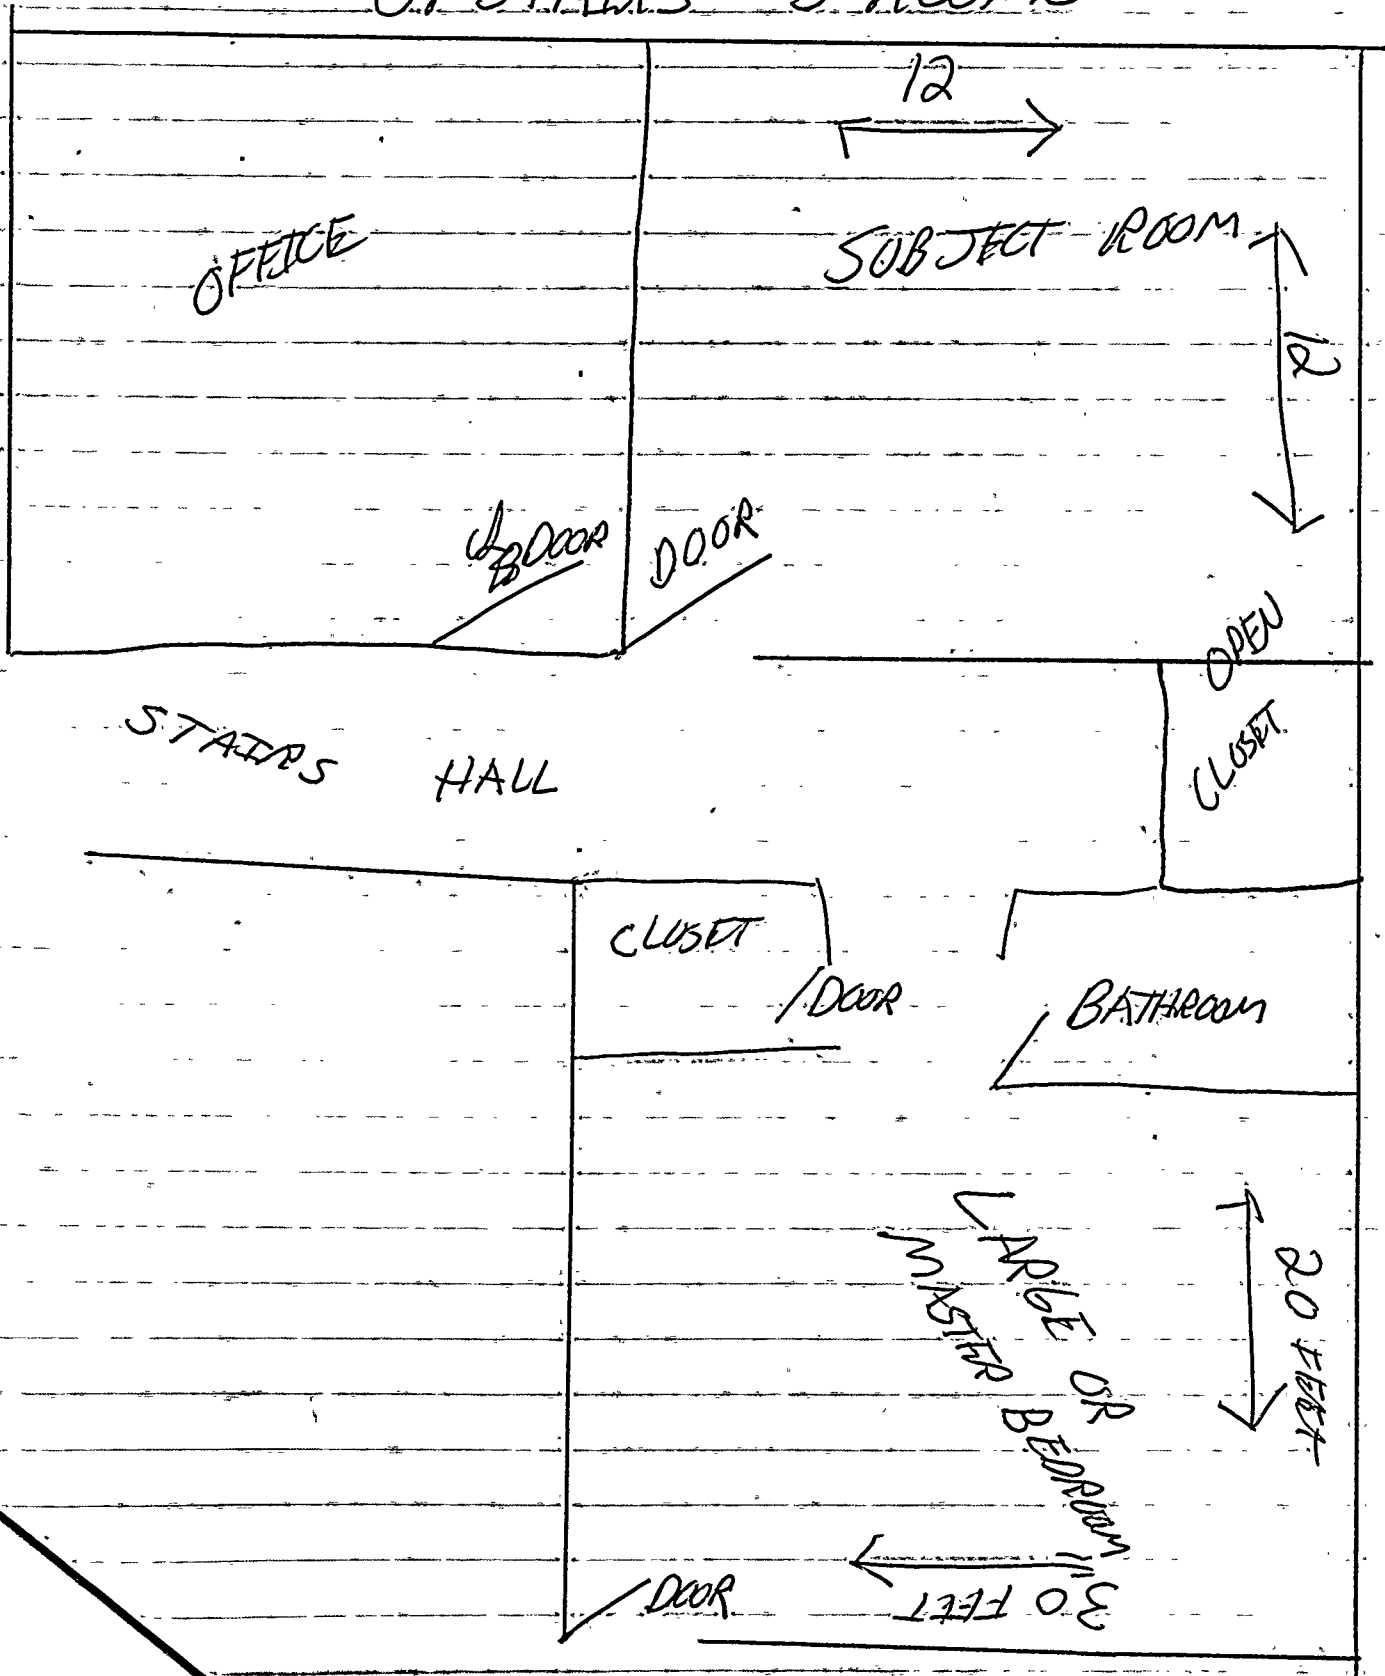 UPSTAIRS 3 ROOMS
12
OFFICE
SUBJECT ROOM
12
DOOR
DOOR
OPEN
CLOSET
STAIRS
HALL
CLOSET
DOOR
BATHROOM
LARGE OR
MASTER BEDROOM
20 FEET
30 FEET
DOOR